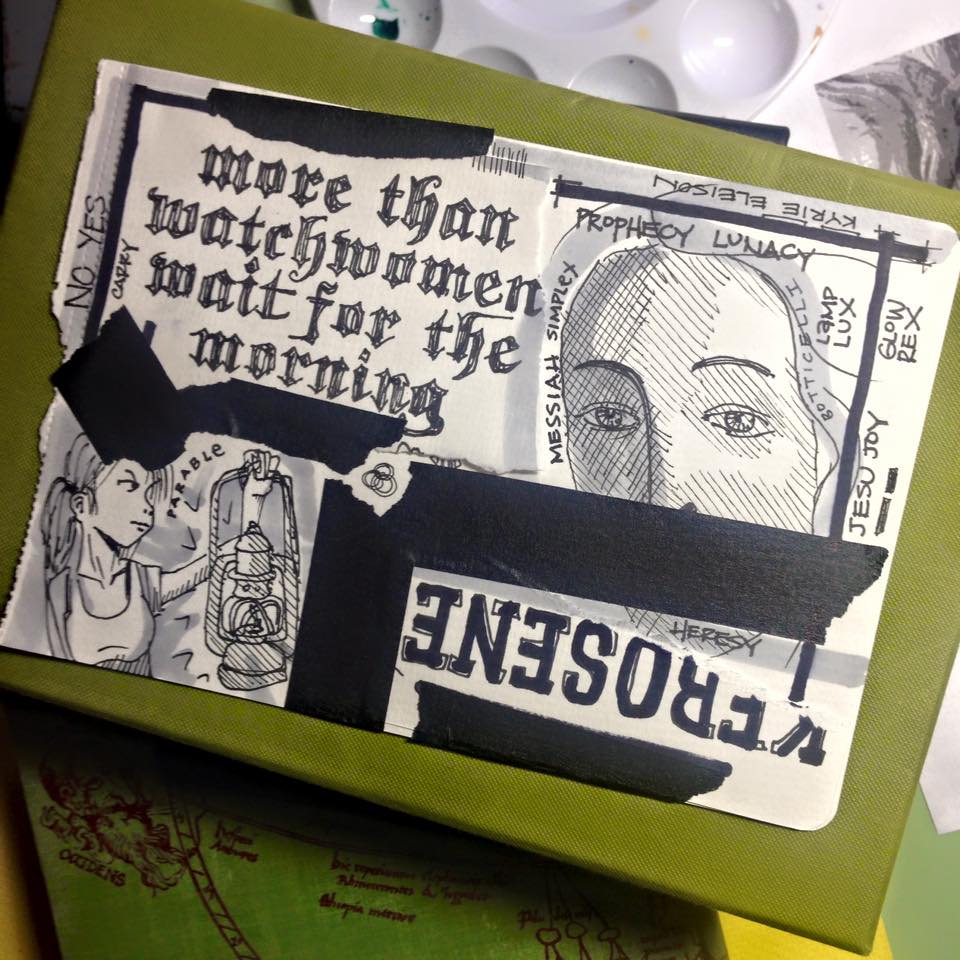 more than
watchwomen
wait for the
morning
NO YES
CARRY
PARABLE
KYRIE ELEISON
PROPHECY LUNACY
MESSIAH SIMPLEX
BOTTICELLI
LAMP
LUX
GLOW
REX
JESU JOY
HERESY
KEROSENE
OCCIDENS